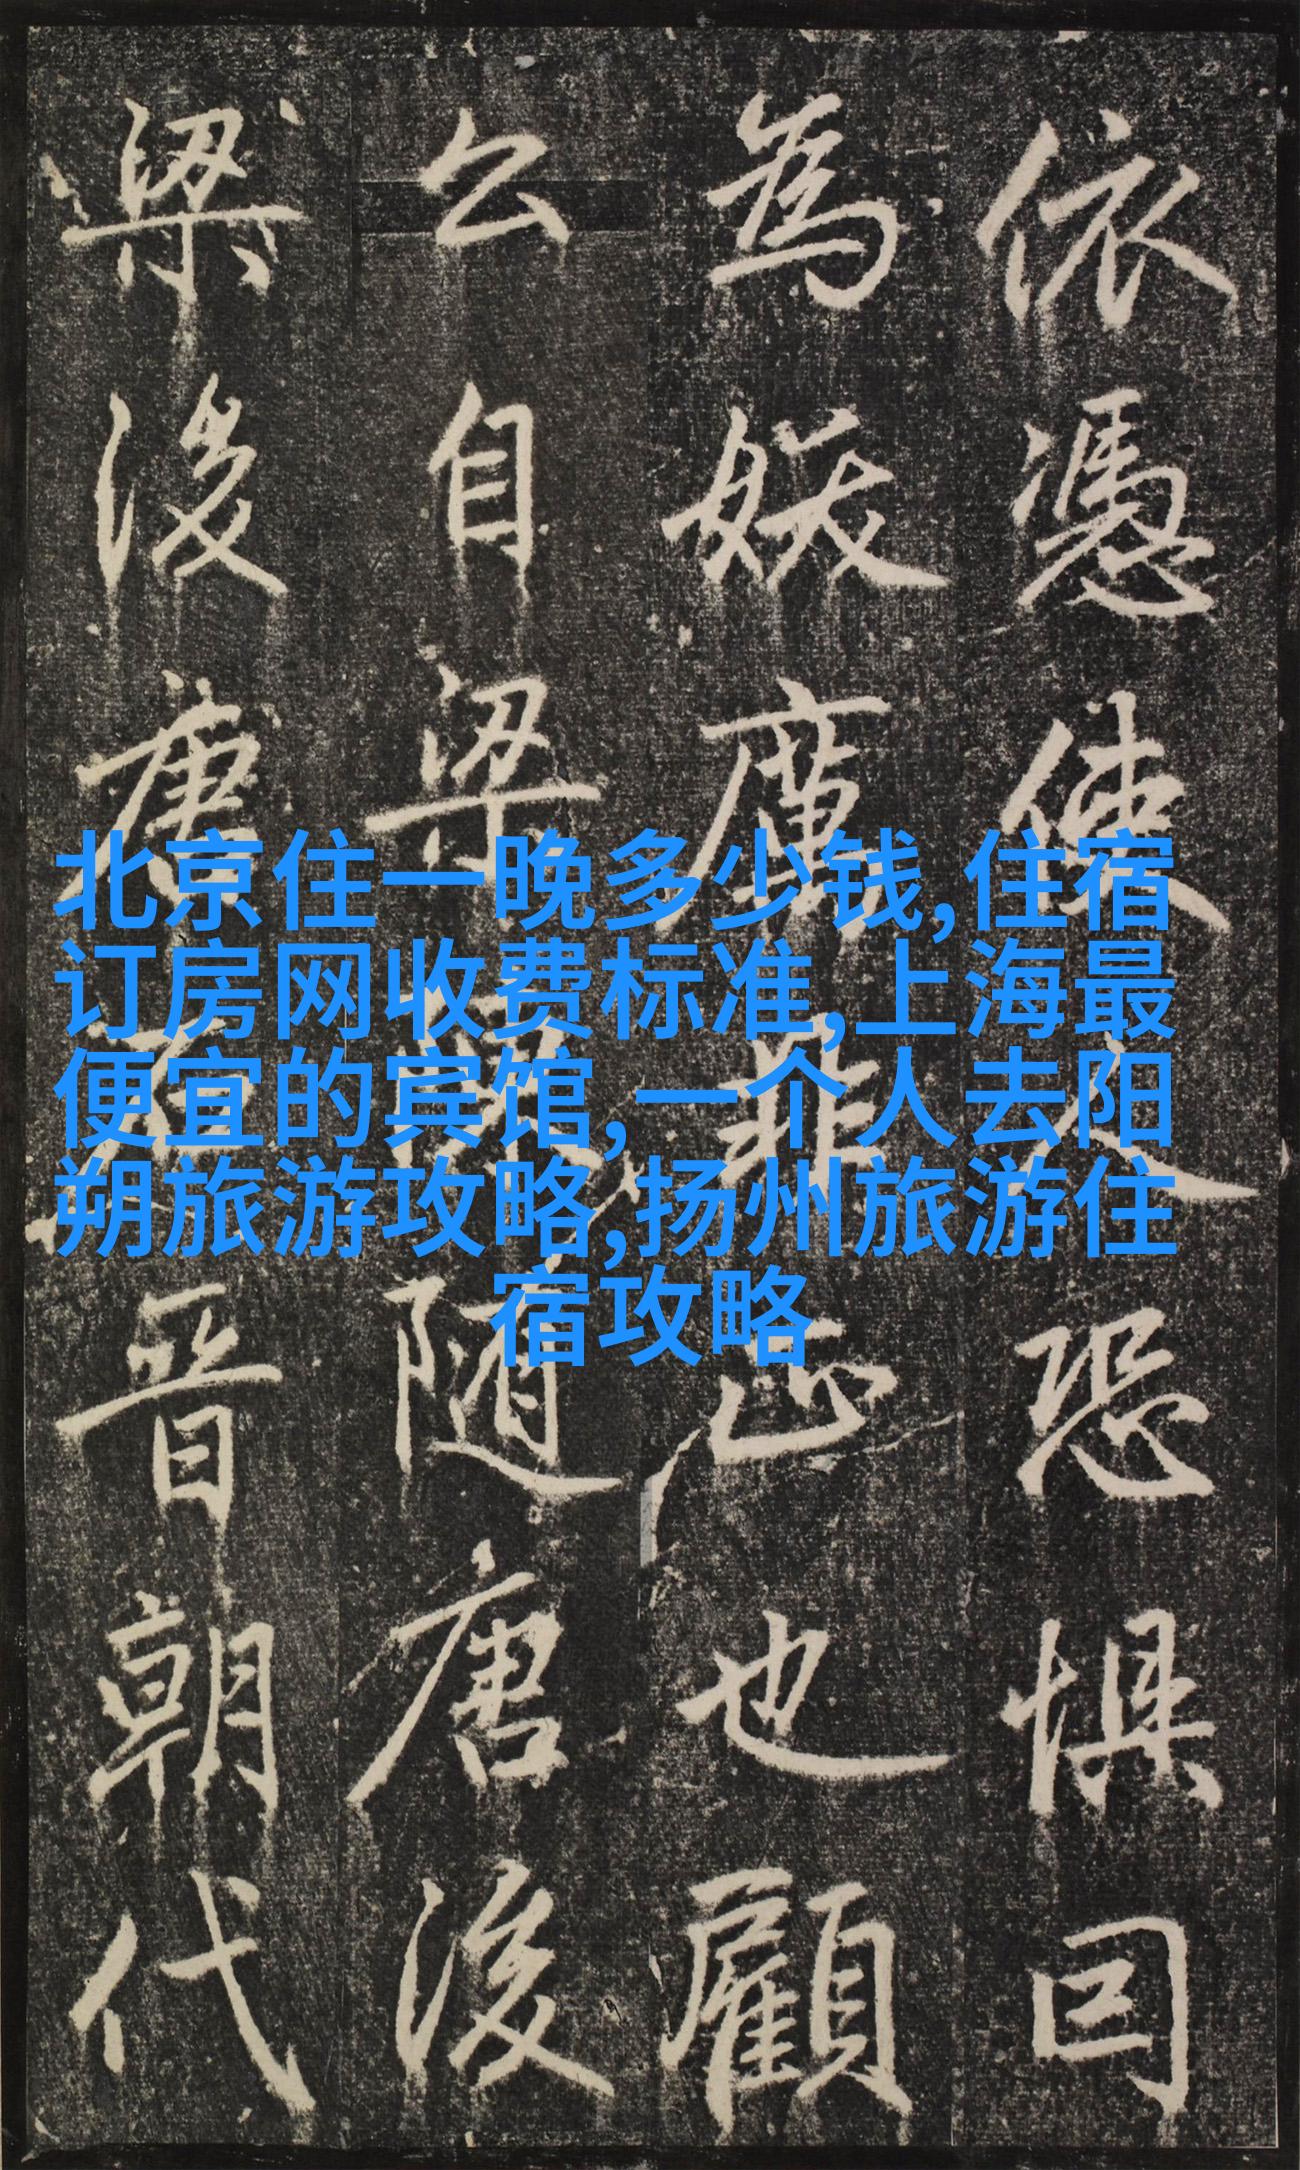 依憑使人恐惧
為妖厲非正也顧
公自梁隨唐後
梁後唐石晉朝代
北京住一晚多少钱,住宿
订房网收费标准,上海最
便宜的宾馆,一个人去阳
朔旅游攻略,扬州旅游住
宿攻略